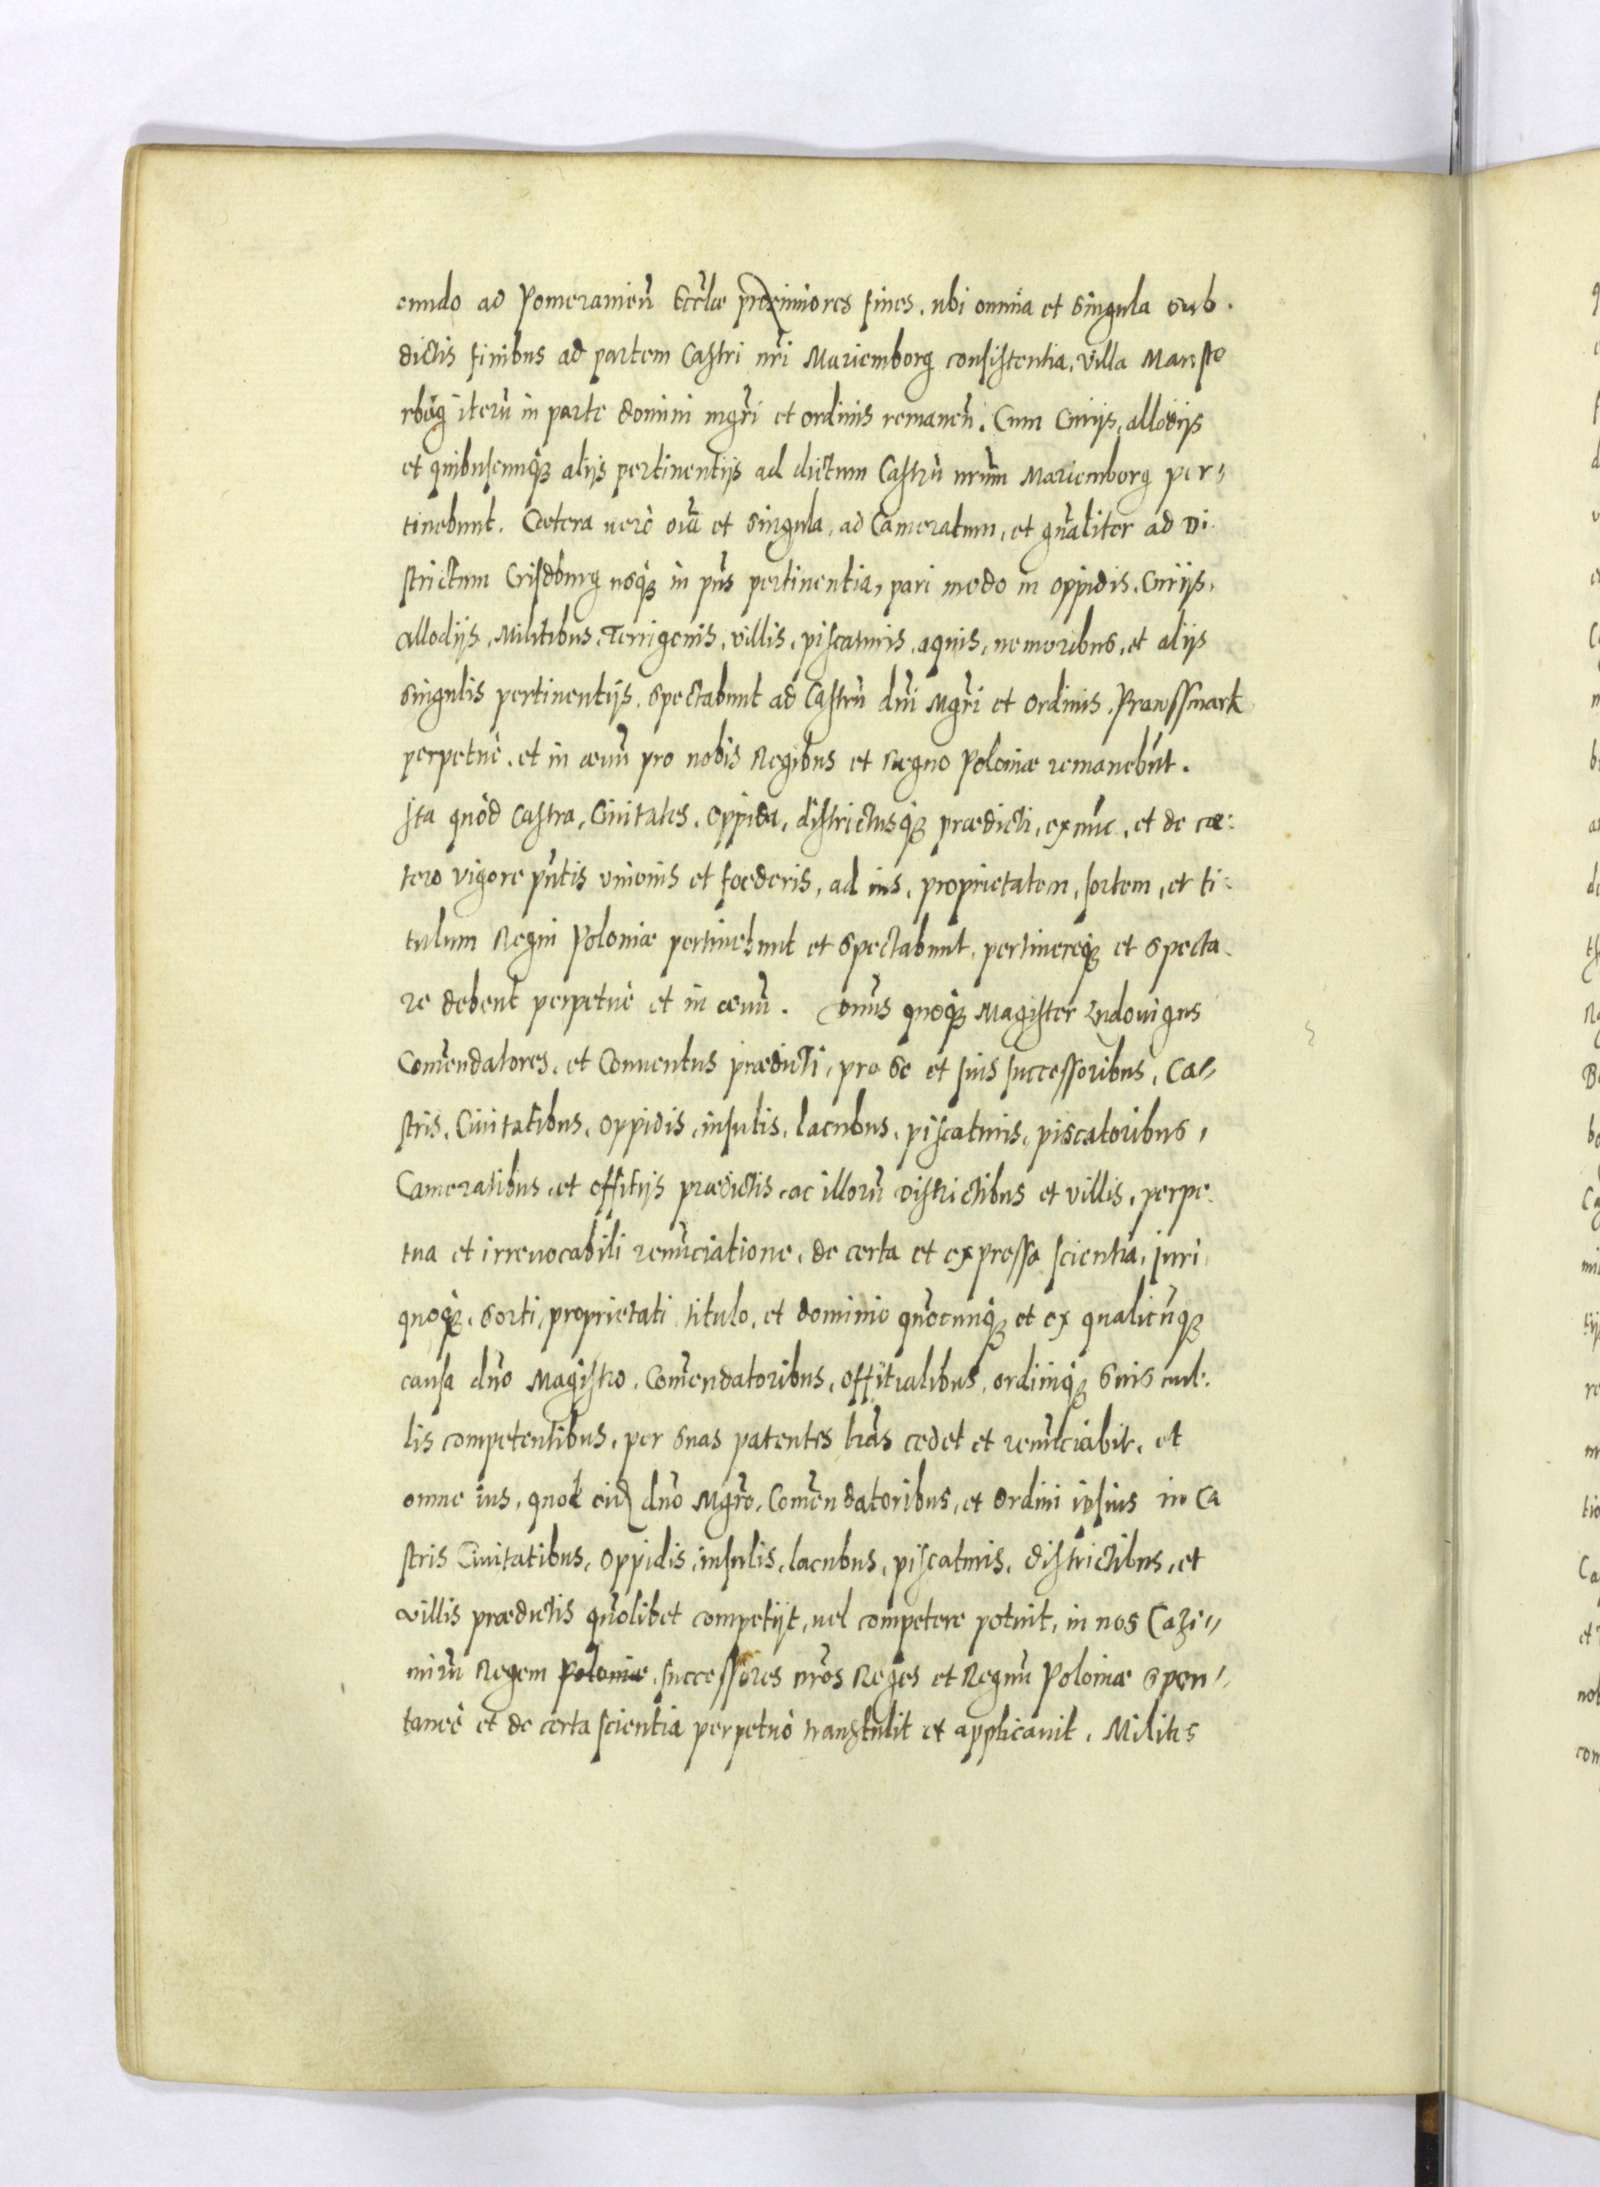 eundo ad Pomeranieñ Eccliæ proximiores fines, ubi omnia et singula sub.
dictis finibus ad partem Castri nr̃i Mariemborg consistentia, villa Manste
rbũg iterũ in parte domini mgr̃i et ordinis remaneñ. Cum Curijs, allodijs
et quibuscunq; alijs pertinentijs ad dictum Castrũ nrũm Mariemborg per„
tinebunt. Cœtera verò oĩa et singula, ad Cameratum, et gñaliter ad Di
strictum Crisdburg usq; in pñs pertinentia, pari modo in oppidis. Curijs.
Allodijs. Militibus. Terrigenis. villis. piscaturis. aquis. nemoribus, et alijs
singulis pertinentijs. spectabunt ad Castrũ dñi Mgr̃i et ordinis. Prawssmark
perpetuè. et in æuũ pro nobis Regibus et Regno Poloniæ remanebũt.
Ita quòd Castra, Ciuitates. Oppida. districtusq; prædicti, ex nũc. et de cæ:
tero vigore pñtis vnionis et fœderis, ad ius, proprietatem, sortem, et ti:
tulum Regni Poloniæ pertinebunt et spectabunt. pertinereq; et specta.
re debent perpetuè et in æuũ. Dñus quoq; Magister Ludouigus
Comẽndatores, et Conuentus prædicti, pro se et suis successoribus. Ca„
stris. Ciuitatibus, oppidis, insulis. lacubus. piscaturis. piscatoribus,
Cameratibus. et offitijs prædictis. ac illorũ districtibus et villis, perpe.
tua et irreuocabili renũciatione. de certa et expressa scientia, iuri
quoq;. sorti, proprietati titulo. et dominio quocunq; et ex qualicũq;
causa dño Magistro. Comẽndatoribus. offitialibus. ordiniq; suis
lis competentibus. per suas patentes lr̃as cedet et renũciabit. et
omne ius. quod eid dño Mgr̃o. Comẽndatoribus, et Ordini ipsius in Ca
stris Ciuitatibus. oppidis. insulis. lacubus. piscaturis. districtibus, et
villis prædictis quõlibet competijt, uel competere potuit, in nos Cazi„
mirũ Regem Poloniæ. successores nr̃os Reges et Regnũ Poloniæ spon„
taneè et de certa scientia perpetuò transtulit et applicauit. Milites